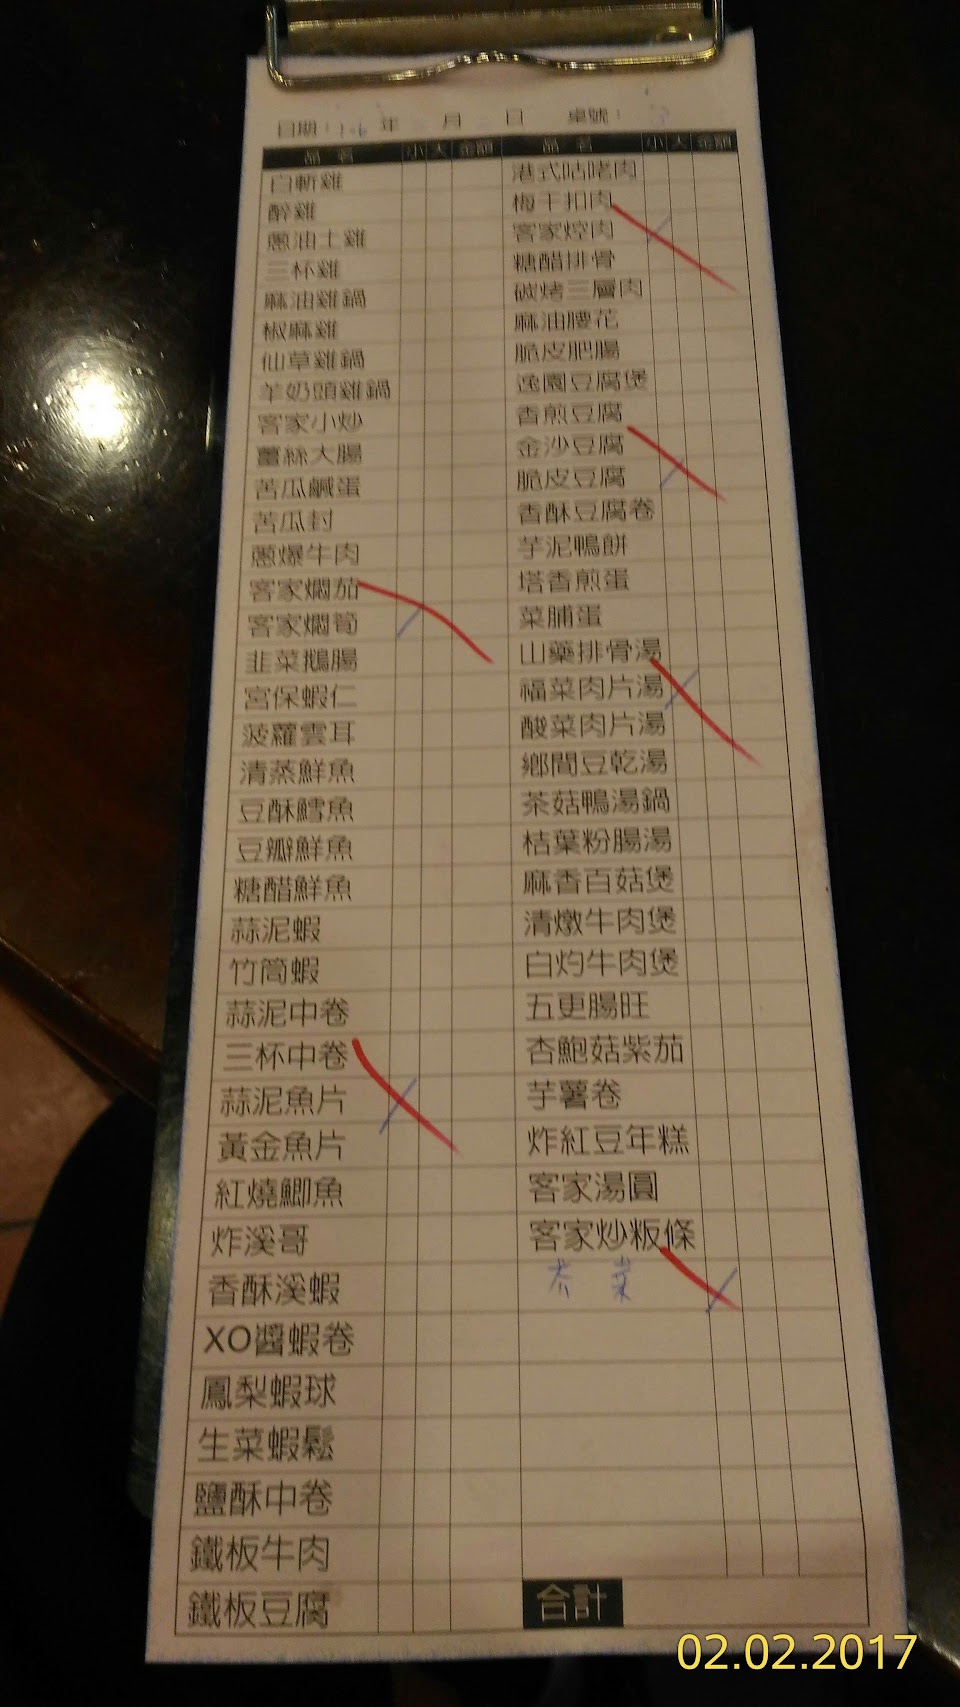 日期： 年 月 日 桌號：
品名 小 大 金額 品名 小 大 金額
白斬雞
醉雞
蔥油土雞
三杯雞
麻油雞鍋
椒麻雞
仙草雞鍋
羊奶頭雞鍋
客家小炒
薑絲大腸
苦瓜鹹蛋
苦瓜封
蔥爆牛肉
客家燜茄
客家燜筍
韭菜鵝腸
宮保蝦仁
菠蘿雲耳
清蒸鮮魚
豆酥鱈魚
豆瓣鮮魚
糖醋鮮魚
蒜泥蝦
竹筒蝦
蒜泥中卷
三杯中卷
蒜泥魚片
黃金魚片
紅燒鯽魚
炸溪哥
香酥溪蝦
XO醬蝦卷
鳳梨蝦球
生菜蝦鬆
鹽酥中卷
鐵板牛肉
鐵板豆腐
港式咕咾肉
梅干扣肉
客家焢肉
糖醋排骨
碳烤三層肉
麻油腰花
脆皮肥腸
逸園豆腐煲
香煎豆腐
金沙豆腐
脆皮豆腐
香酥豆腐卷
芋泥鴨餅
塔香煎蛋
菜脯蛋
山藥排骨湯
福菜肉片湯
酸菜肉片湯
鄉間豆乾湯
茶菇鴨湯鍋
桔葉粉腸湯
麻香百菇煲
清燉牛肉煲
白灼牛肉煲
五更腸旺
杏鮑菇紫茄
芋薯卷
炸紅豆年糕
客家湯圓
客家炒粄條
菜
合計
02.02.2017